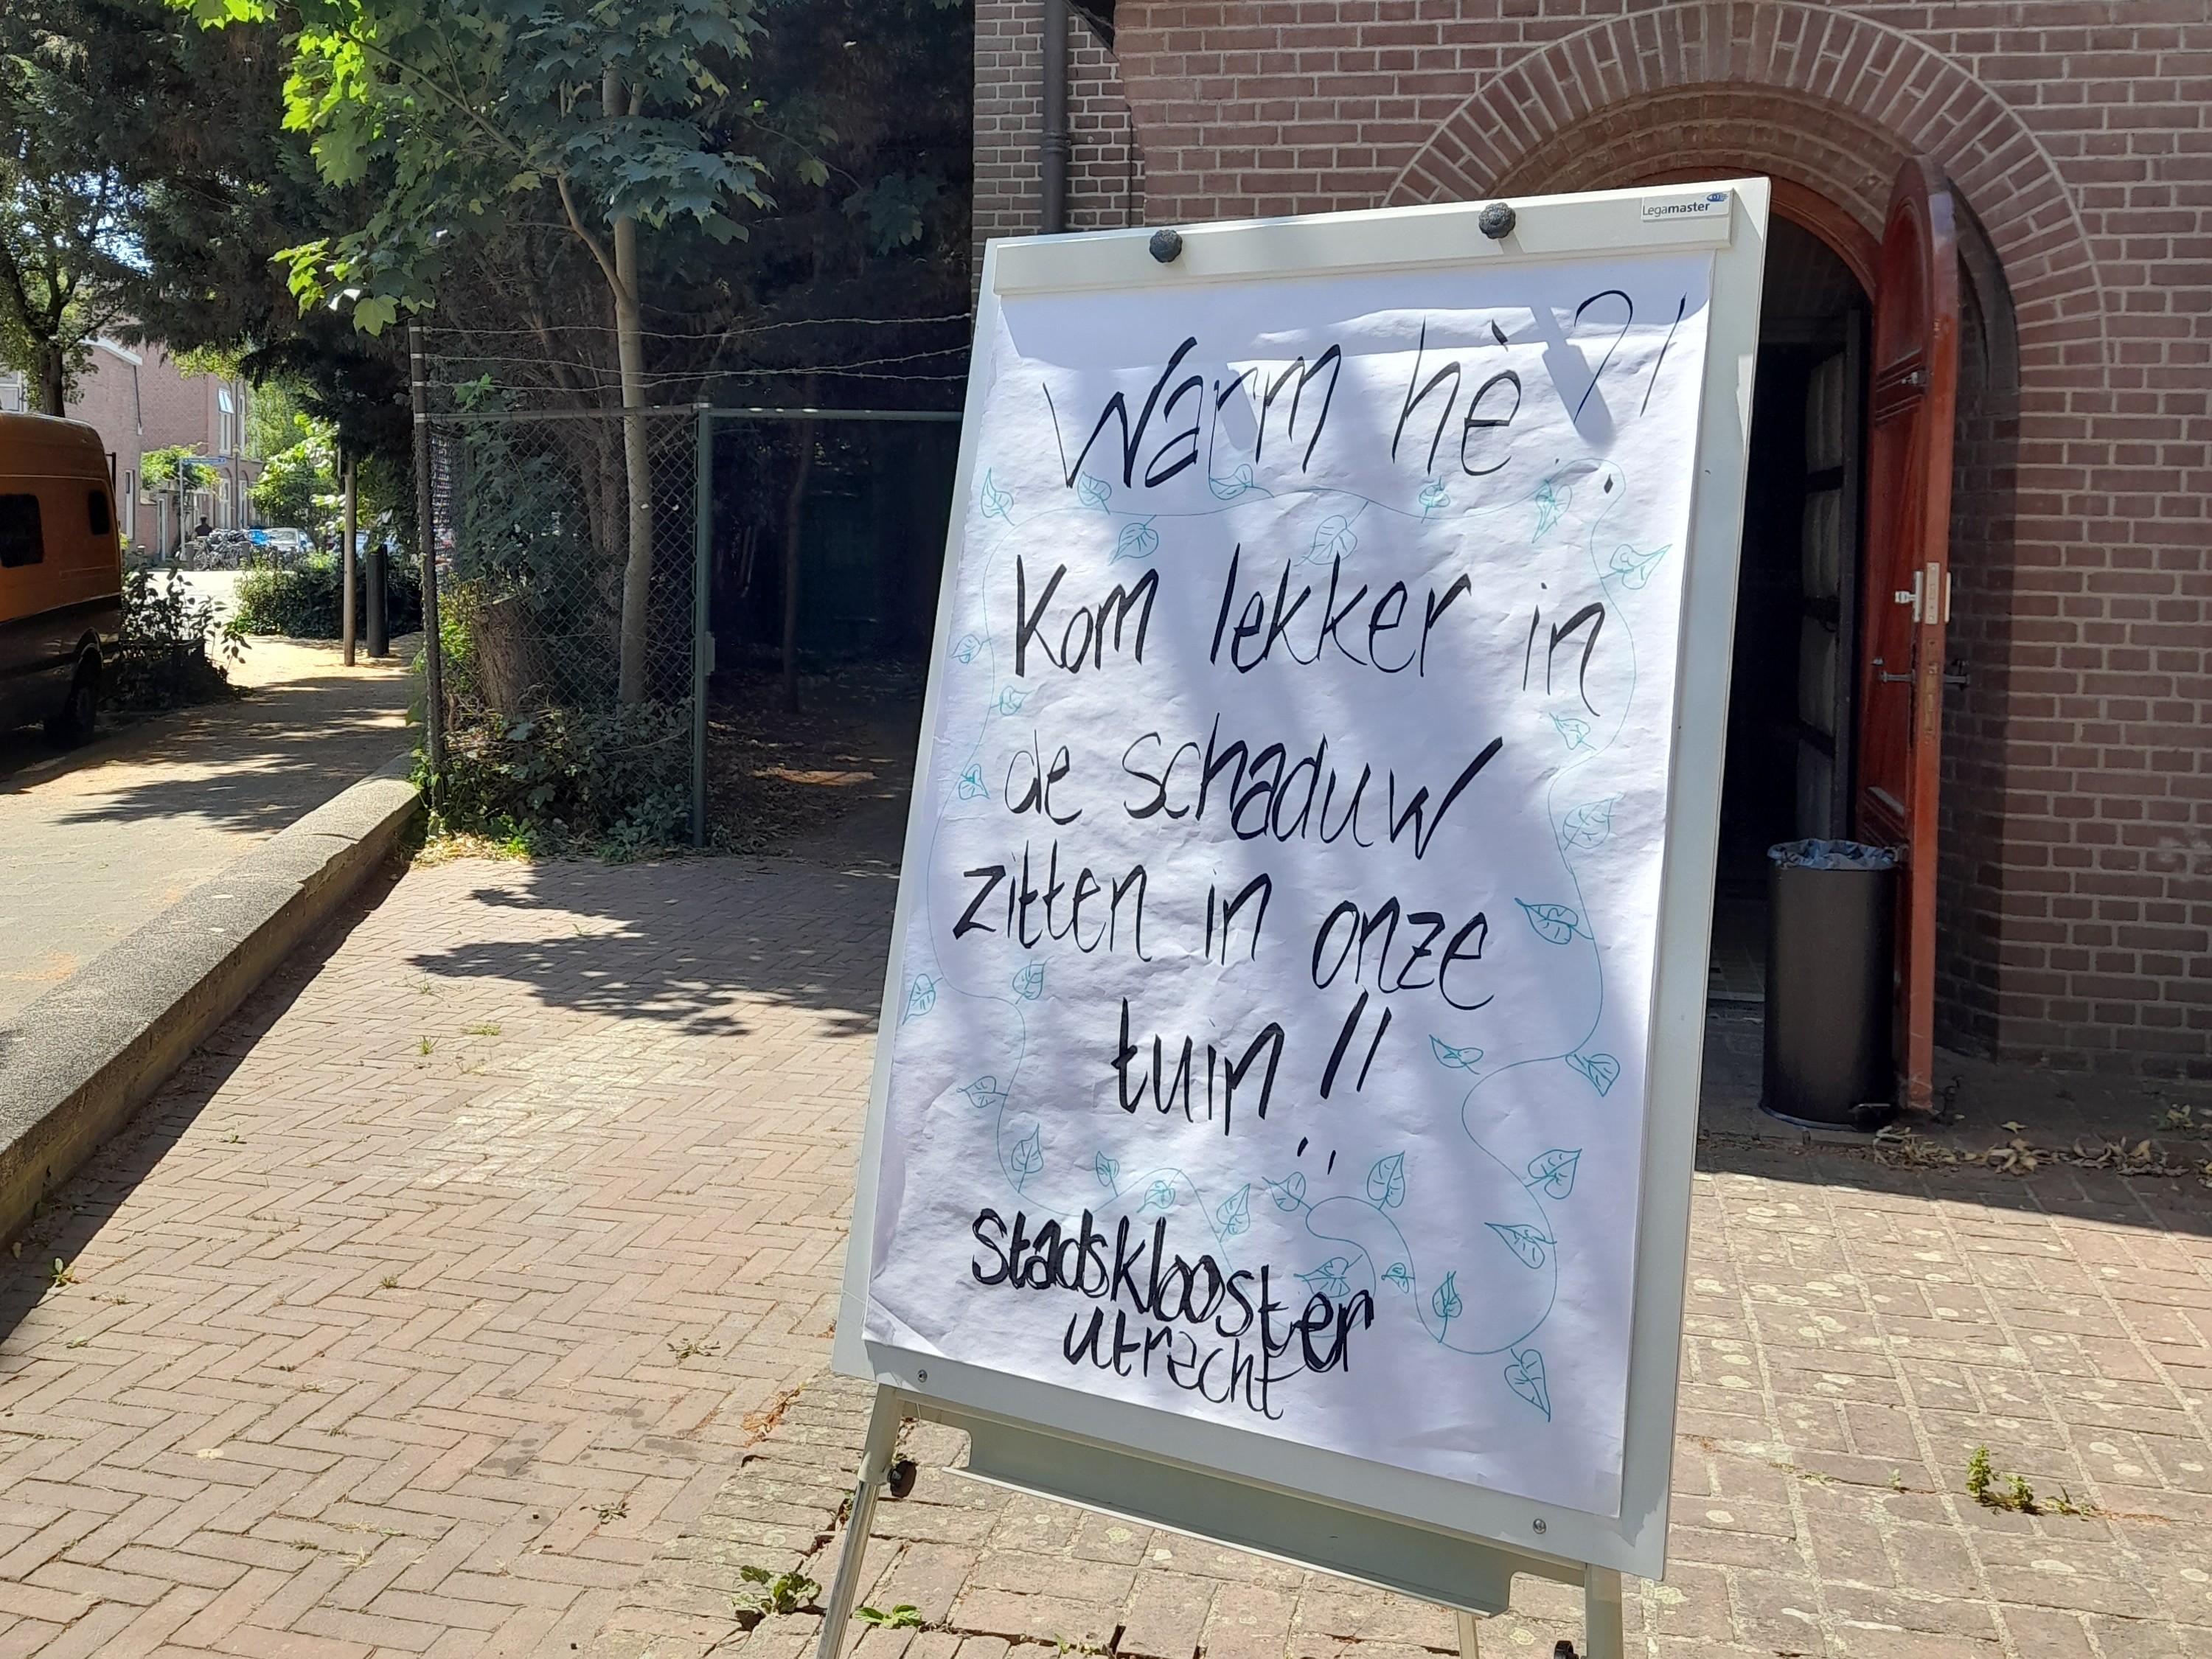 Legamaster
Warm hè?!
Kom lekker in
de schaduw
zitten in onze
tuin!!
Stadsklooster
utrecht